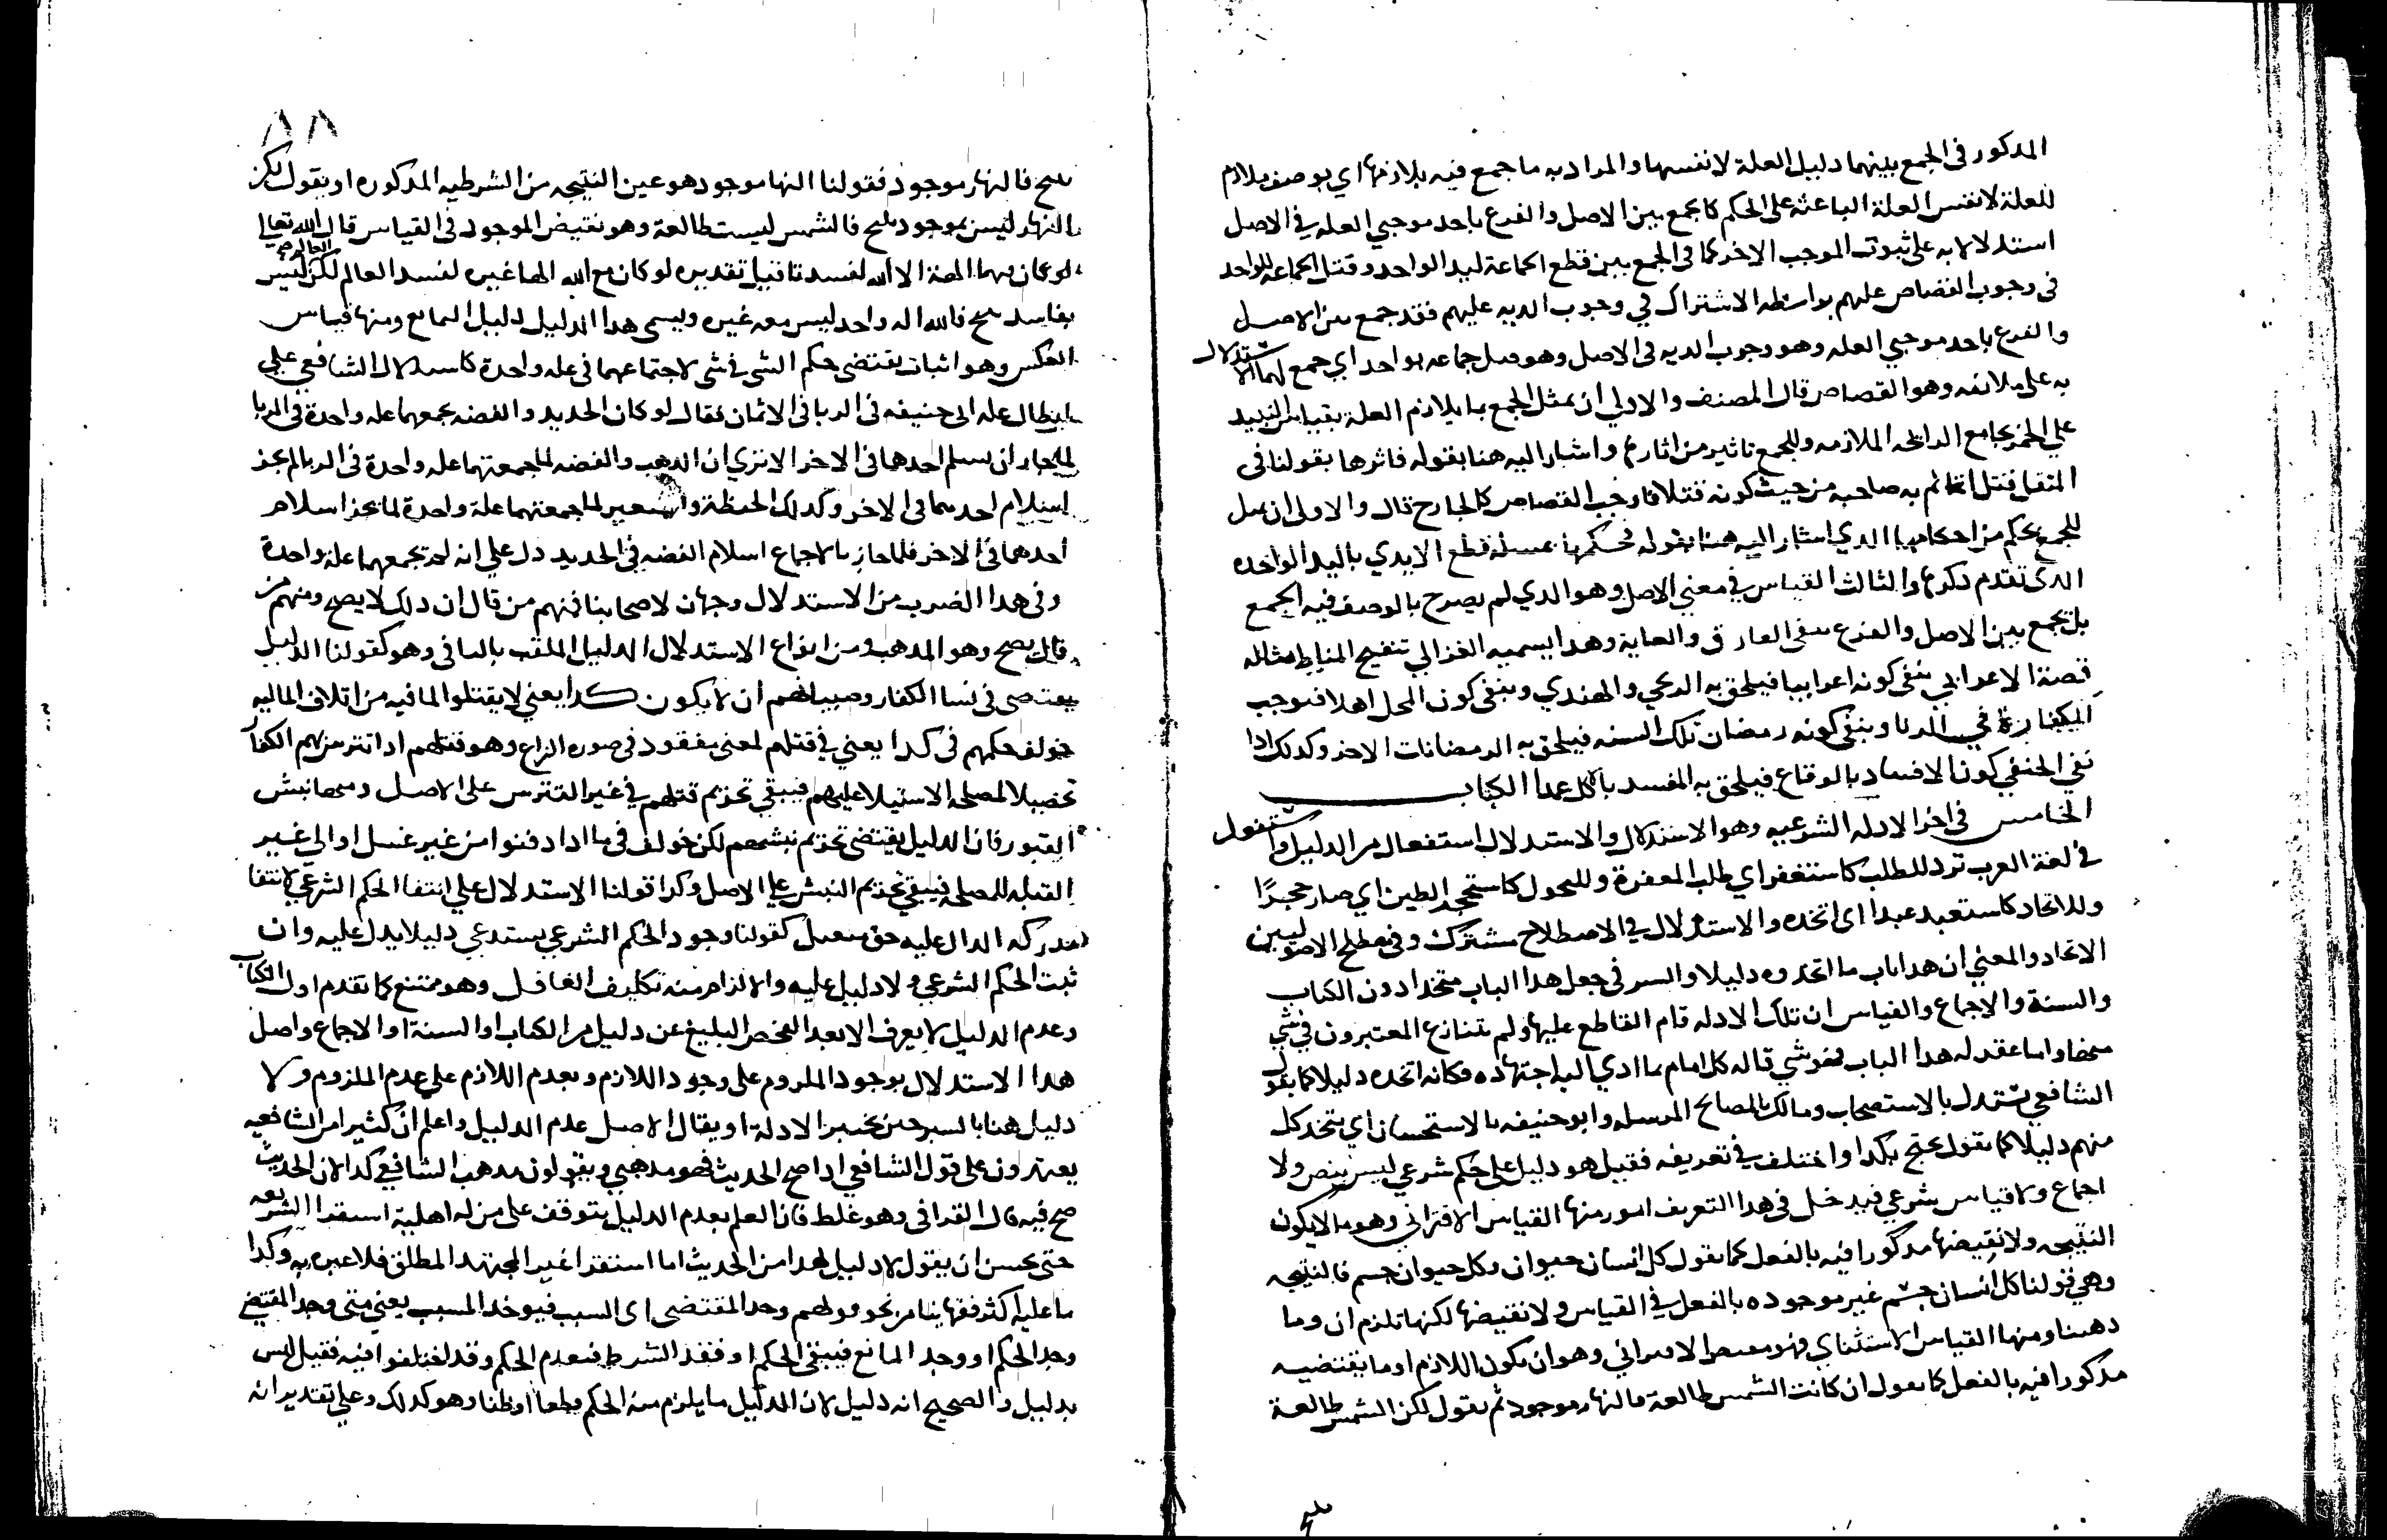 المدكور في الجمع بينهما دليل العلة لا نفسها والمراد به ما جمع فيه بلازمها اي بوصف ملازم
للعلة لا نفس العلة الباعثة على الحكم كما يجمع بين الاصل والفرع باحد موجبي العله في الاصل
استدلالا به على ثبوت الموجب الاخر كما في الجمع بين قطع الجماعة ليد الواحد وقتل الجماعة للواحد
في وجوب القصاص عليهم بواسطه الاشتراك في وجوب الديه عليهم فقد جمع بين الاصل
والفرع باحد موجبي العله وهو وجوب الديه في الاصل وهو قتل جماعه بواحد اي جمع لهما الاستدلال
به على ملازمه وهو القصاص قال المصنف والاولى ان يمثل الجمع بما يلازم العلة بقياس النبيد
على الخمر بجامع الرائحه الملازمه وللجمع تاثير من اثارها واشار اليه هنا بقوله فاثرها بقولنا في
المثقل قتل اثم به صاحبه من حيث كونه قتلا فاوجب القصاص كالجارح قال والاولى ان يمثل
للجمع بحكم من احكامها الدي اشار اليه هنا بقوله فحكمها بمسلة قطع الايدي باليد الواحده
الدي تقدم دكرها والثالث القياس في معنى الاصل وهو الدي لم يصرح بالوصف فيه الجمع
بل يجمع بين الاصل والفرع بنفي الفارق والغاية وهدا يسميه الغزالي تنقيح المناط مثاله
قصة الاعرابي بنفي كونه اعرابيا فيلحق به الدعجي والهندي وبنفي كون المحل اهلا فتوجب
الكفارة في الزنا وبنفي كونه رمضان تلك السنه فيلحق به الرمضانات الاخر وكدلك ادا
نفي الحنفي كون الافساد بالوقاع فيلحق به المفسد بالاكل عمدا الكتاب
الخامس في اخر الادله الشرعيه وهو الاستدلال والاستدلال استفعال من الدليل واستفعل
في لغة العرب ترد للطلب كاستغفر اي طلب المغفرة وللتحول كاستحجر الطين اي صار حجرا
وللاتخاد كاستعبد عبدا اي اتخده والاستدلال في الاصطلاح مشترك وفي مصطلح الاصوليين
الاتخاد والمعني ان هدا باب ما اتخدوه دليلا والسر في جعل هدا الباب متخدا دون الكتاب
والسنة والاجماع والقياس ان تلك الادله قام القاطع عليها ولم يتنازع المعتبرون في شي
منها واما عقد له هدا الباب فهو شي قاله كل امام بما ادي اليه اجتهاده فكانه اتخده دليلا كما يقول
الشافعي يستدل بالاستصحاب ومالك بالمصالح المرسله وابو حنيفه بالاستحسان اي يتخد كل
منهم دليلا كما تقول يحتج بكدا واختلف في تعريفه فقيل هو دليل على حكم شرعي ليس بنص ولا
اجماع ولا قياس شرعي فيدخل في هدا التعريف امور منها القياس الاقتراني وهو ما لا يكون
النتيجه ولا نقيضها مدكورا فيه بالفعل كما تقول كل انسان حيوان وكل حيوان جسم فالنتيجه
وهي قولنا كل انسان جسم غير موجوده بالفعل في القياس ولا نقيضها لكنها تلزم ان وما
دهننا ومنها القياس الاستثناي فهو نقيض الاقتراني وهو ان يكون اللازم او ما يقتضيه
مدكورا فيه بالفعل كما تقول ان كانت الشمس طالعة فالنهار موجود ثم تقول لكن الشمس طالعة
٨٨
ينتج فالنهار موجود فقولنا النها موجود هو عين النتيجه من الشرطيه المدكوره او يقول لكن
النهار ليس بموجود ينتج فالشمس ليست طالعة وهو نقيض الموجود في القياس قال الله تعالى
لو كان فيهما الهة الا الله لفسدتا قيل تقديره لو كان مع الله الها غيره لفسد العالم لكن العالم ليس
بفاسد ينتج فالله اله واحد ليس معه غيره ويسمى هدا الدليل دليل التمانع ومنها قياس
العكس وهو اثبات يقتضى حكم الشي في شي لاجتماعهما في عله واحدة كاستدلال الشافعي على
ابطال عله ابي حنيفه في الربا في الاثمان فقال لو كان الحديد والفضه يجمعهما عله واحدة في الربا
لما جاز ان يسلم احدهما في الاخر الا تري ان الدهب والفضه لما جمعتهما عله واحدة في الربا لم يجز
اسلام احدهما في الاخر وكدلك الحنطة والشعير لما جمعتهما علة واحدة لما يجز اسلام
احدهما في الاخر فلما جاز بالاجماع اسلام الفضه في الحديد دل على انه لم تجمعهما علة واحدة
وفي هدا الضرب من الاستدلال وجهان لاصحابنا فمنهم من قال ان دلك لا يصح ومنهم من
قال يصح وهو المدهب ومن انواع الاستدلال الدليل الملقب بالنافي وهو كقولنا الدليل
يقتضى في نسا الكفار وصبيانهم ان لا يكون كدا يعني لا يقتلوا لما فيه من اتلاف الماليه
خولف حكمهم في كدا يعني في قتلهم لمعنى مفقود في صوره النزاع وهو قتلهم ادا تترس بهم الكفار
تحصيلا لمصلحه الاستيلا عليهم فيبقى تحريم قتلهم في غير التترس على الاصل ومنها نبش
القبور فان الدليل يقتضى تحريم نبشهم لكن خولف في ما ادا دفنوا من غير غسل او الى غير
القبله للمصلحه فيبقي تحريم النبش على الاصل وكدا قولنا الاستدلال على انتفا الحكم الشرعي لانتفا
مدركه الدال عليه كقولنا وجود الحكم الشرعي يستدعي دليلا يدل عليه وان
ثبت الحكم الشرعي ولا دليل عليه والا لزام منه تكليف الغافل وهو ممتنع كما تقدم اول الكتاب
وعدم الدليل لا يعرف الا بعد الفحص البليغ عن دليل من الكتاب او السنة او الاجماع واصل
هدا الاستدلال بوجود الملزوم على وجود اللازم وبعدم اللازم على عدم الملزوم ولا
دليل هنا بالسبر حين نختبر الادلة او يقال الاصل عدم الدليل واعلم ان كثيرا من الشافعيه
يعتمدون على قول الشافعي ادا صح الحديث فهو مدهبي ويقولون مدهب الشافعي كدا لان الحديث
صح فيه قال القرافي وهو غلط فان العلم بعدم الدليل يتوقف على من له اهلية استقرا الشريعه
حتى يحسن ان يقول لا دليل لهدا من الحديث اما استقرا غير المجتهد المطلق فلا عبره به وكدا
ما عليه اكثر فقهاينا من نحو قولهم وجد المقتضى اي السبب فيوخد المسبب يعني متى وجد المقتضي
وجد الحكم او وجد المانع فيبقى الحكم او فقد الشرط فينعدم الحكم وقد اختلفوا فيه فقيل ليس
بدليل والصحيح انه دليل لان الدليل ما يلزم منه الحكم قطعا او ظنا وهو كدلك وعلى تقدير انه